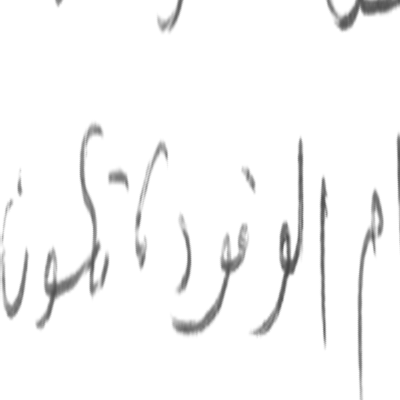 ام الوقود، تكون